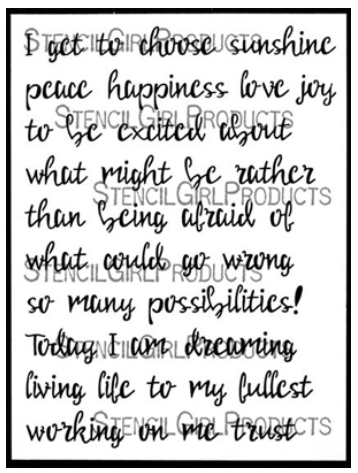 I get to choose sunshine
peace happiness love joy
to be excited about
what might be rather
than being afraid of
what could go wrong
so many possibilities!
Today I am dreaming
living life to my fullest
working on me trust
StencilGirlProducts
StencilGirlProducts
StencilGirlProducts
StencilGirlProducts
StencilGirlProducts
StencilGirlProducts